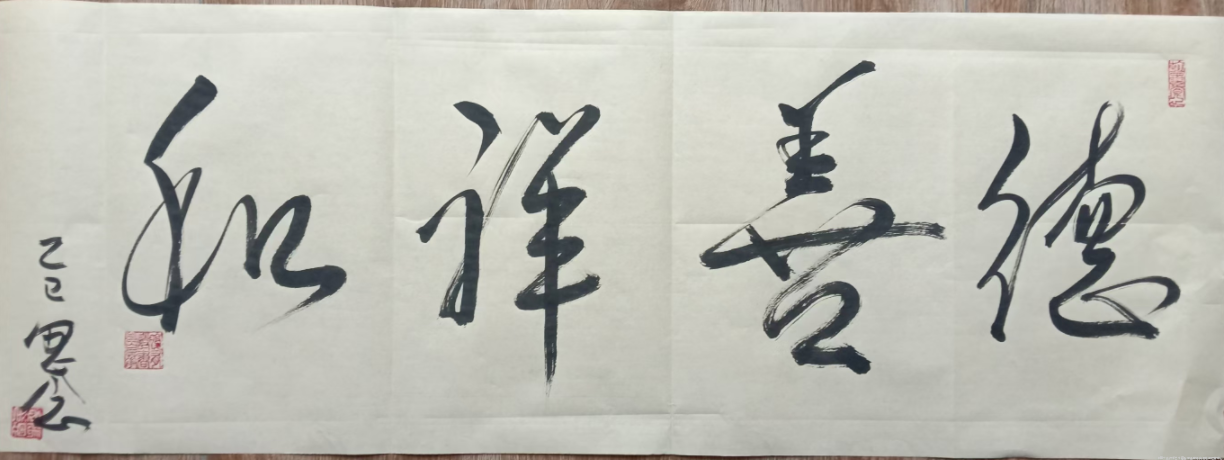 德善祥和
乙巳